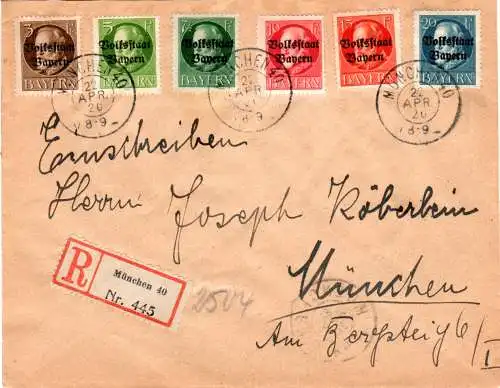 3 Pf. 5 Pf. 7½ Pf. 10 Pf. 15 Pf. 20 Pf.
Volksstaat Bayern Volksstaat Bayern Volksstaat Bayern Volksstaat Bayern Volksstaat Bayern Volksstaat Bayern
BAYERN BAYERN BAYERN BAYERN BAYERN BAYERN
MÜNCHEN 40
22 APR 20
V 8-9
MÜNCHEN 40
MÜNCHEN 40
22 APR 20
V 8-9
Einschreiben
Herrn Joseph Köberlein
München
Am Bergsteig 6/I
R München 40
Nr. 445
2504